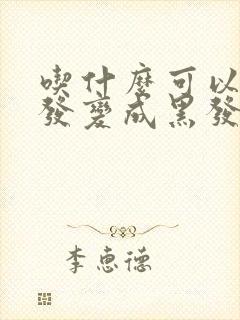 喫什麼可以
發變成黑發
李惠德